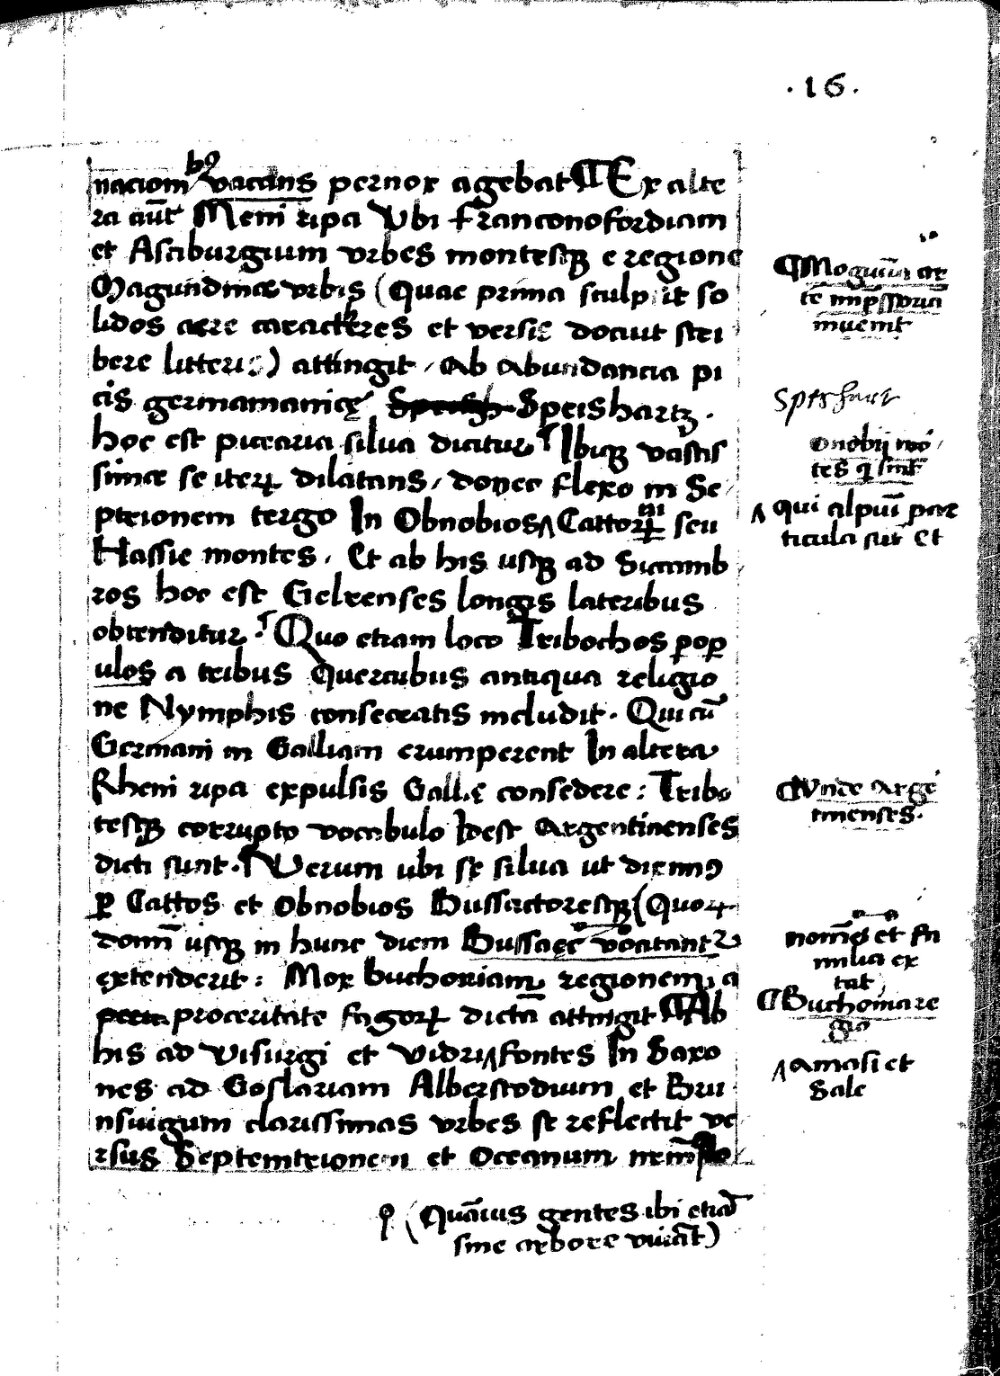 ·16·
naciomb9 vacans pernox agebat ¶ Ex alte
ra aūt Meni ripa Vbi Franconofordiam
et Asciburgium vrbes montesqꝫ e regione
Magundinae vrbis (Quae prima sculpsit so
lidos aere caracteres et versis docuit scri
bere litteris) attingit, Ab Abundancia pi
cis germamanicę Speishartz.
hoc est picearia silua dicitur Ibiqꝫ vastis
simae se iterꝝ dilatans, donec flexo in Se
pteionem tergo In Obnobios Cattorꝝ seu
Hassie montes. Et ab his usqꝫ ad Sicamb
ros hoc est Gelrenses longis lateribus
obtenditur. Quo etiam loco Tribochos pop
ulos a tribus Quercubus antiqua religio
ne Nymphis consecratis includit. Qui cū
Germani in Galliam erumperent In altera
Rheni ripa expulsis Gallis consedere: Tribo
tesqꝫ corrupto vocabulo Idest Argentinenses
dicti sunt. Verum ubi se silua ut diximꝰ
ꝑ Cattos et Obnobios Bussactoresqꝫ (Quoꝝ
domī usqꝫ in hunc diem Bussaeē vocantꝛ
extenderit: Mox buchoniam regionem a
proceritate fagorꝝ dictā attingit ¶ Ab
his ad Visurgi et Vidri fontes In Saxo
nes ad Goslariam Alberstodium et Bru
nsuigum clarissimas vrbes se reflectit ve
rsus Septemtrionem et Oceanum
(Quāuis gentes ibi etiā
sine arbore viuāt)
¶Mogūtia ar
tē īmpssoriā
inuenit
Speshart
Onobij mō
tes q sint
qui alpiū par
ticula sūt Et
¶Vnde Arge
tinenses.
nomē et fa
milia ex
tat
¶Buchonia re
gio
Amasi et
Sale